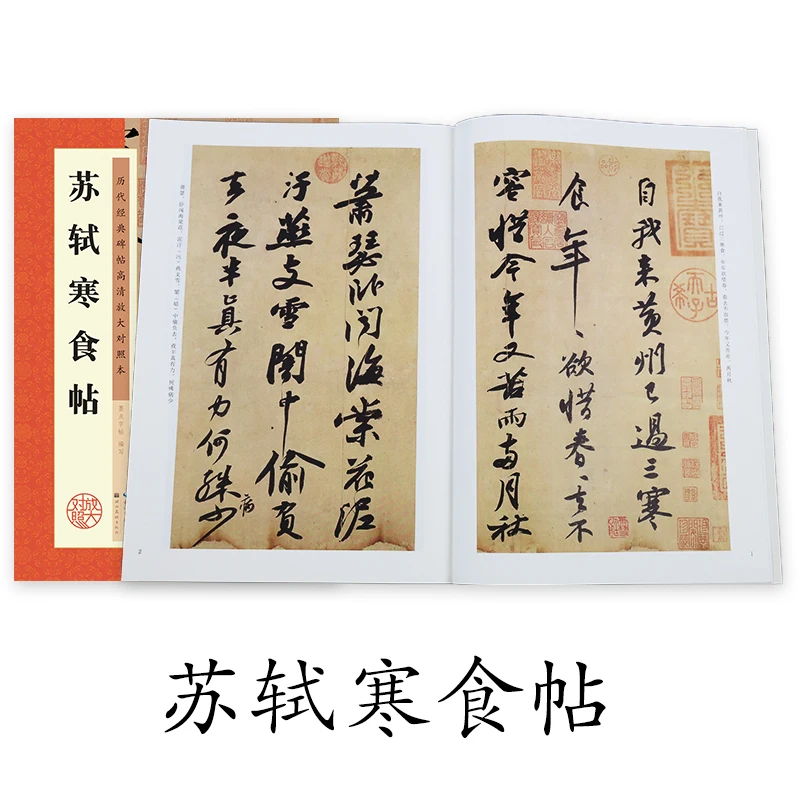 苏轼寒食帖
历代经典碑帖高清放大对照本
墨点字帖 编写
放大对照
自我来黄州已過三寒
食年〻欲惜春〻去不
容惜今年又苦雨两月秋
1
蕭瑟卧闻海棠花泥
汙燕支雪闇中偷負
去夜半真有力何殊少
病
2
苏轼寒食帖